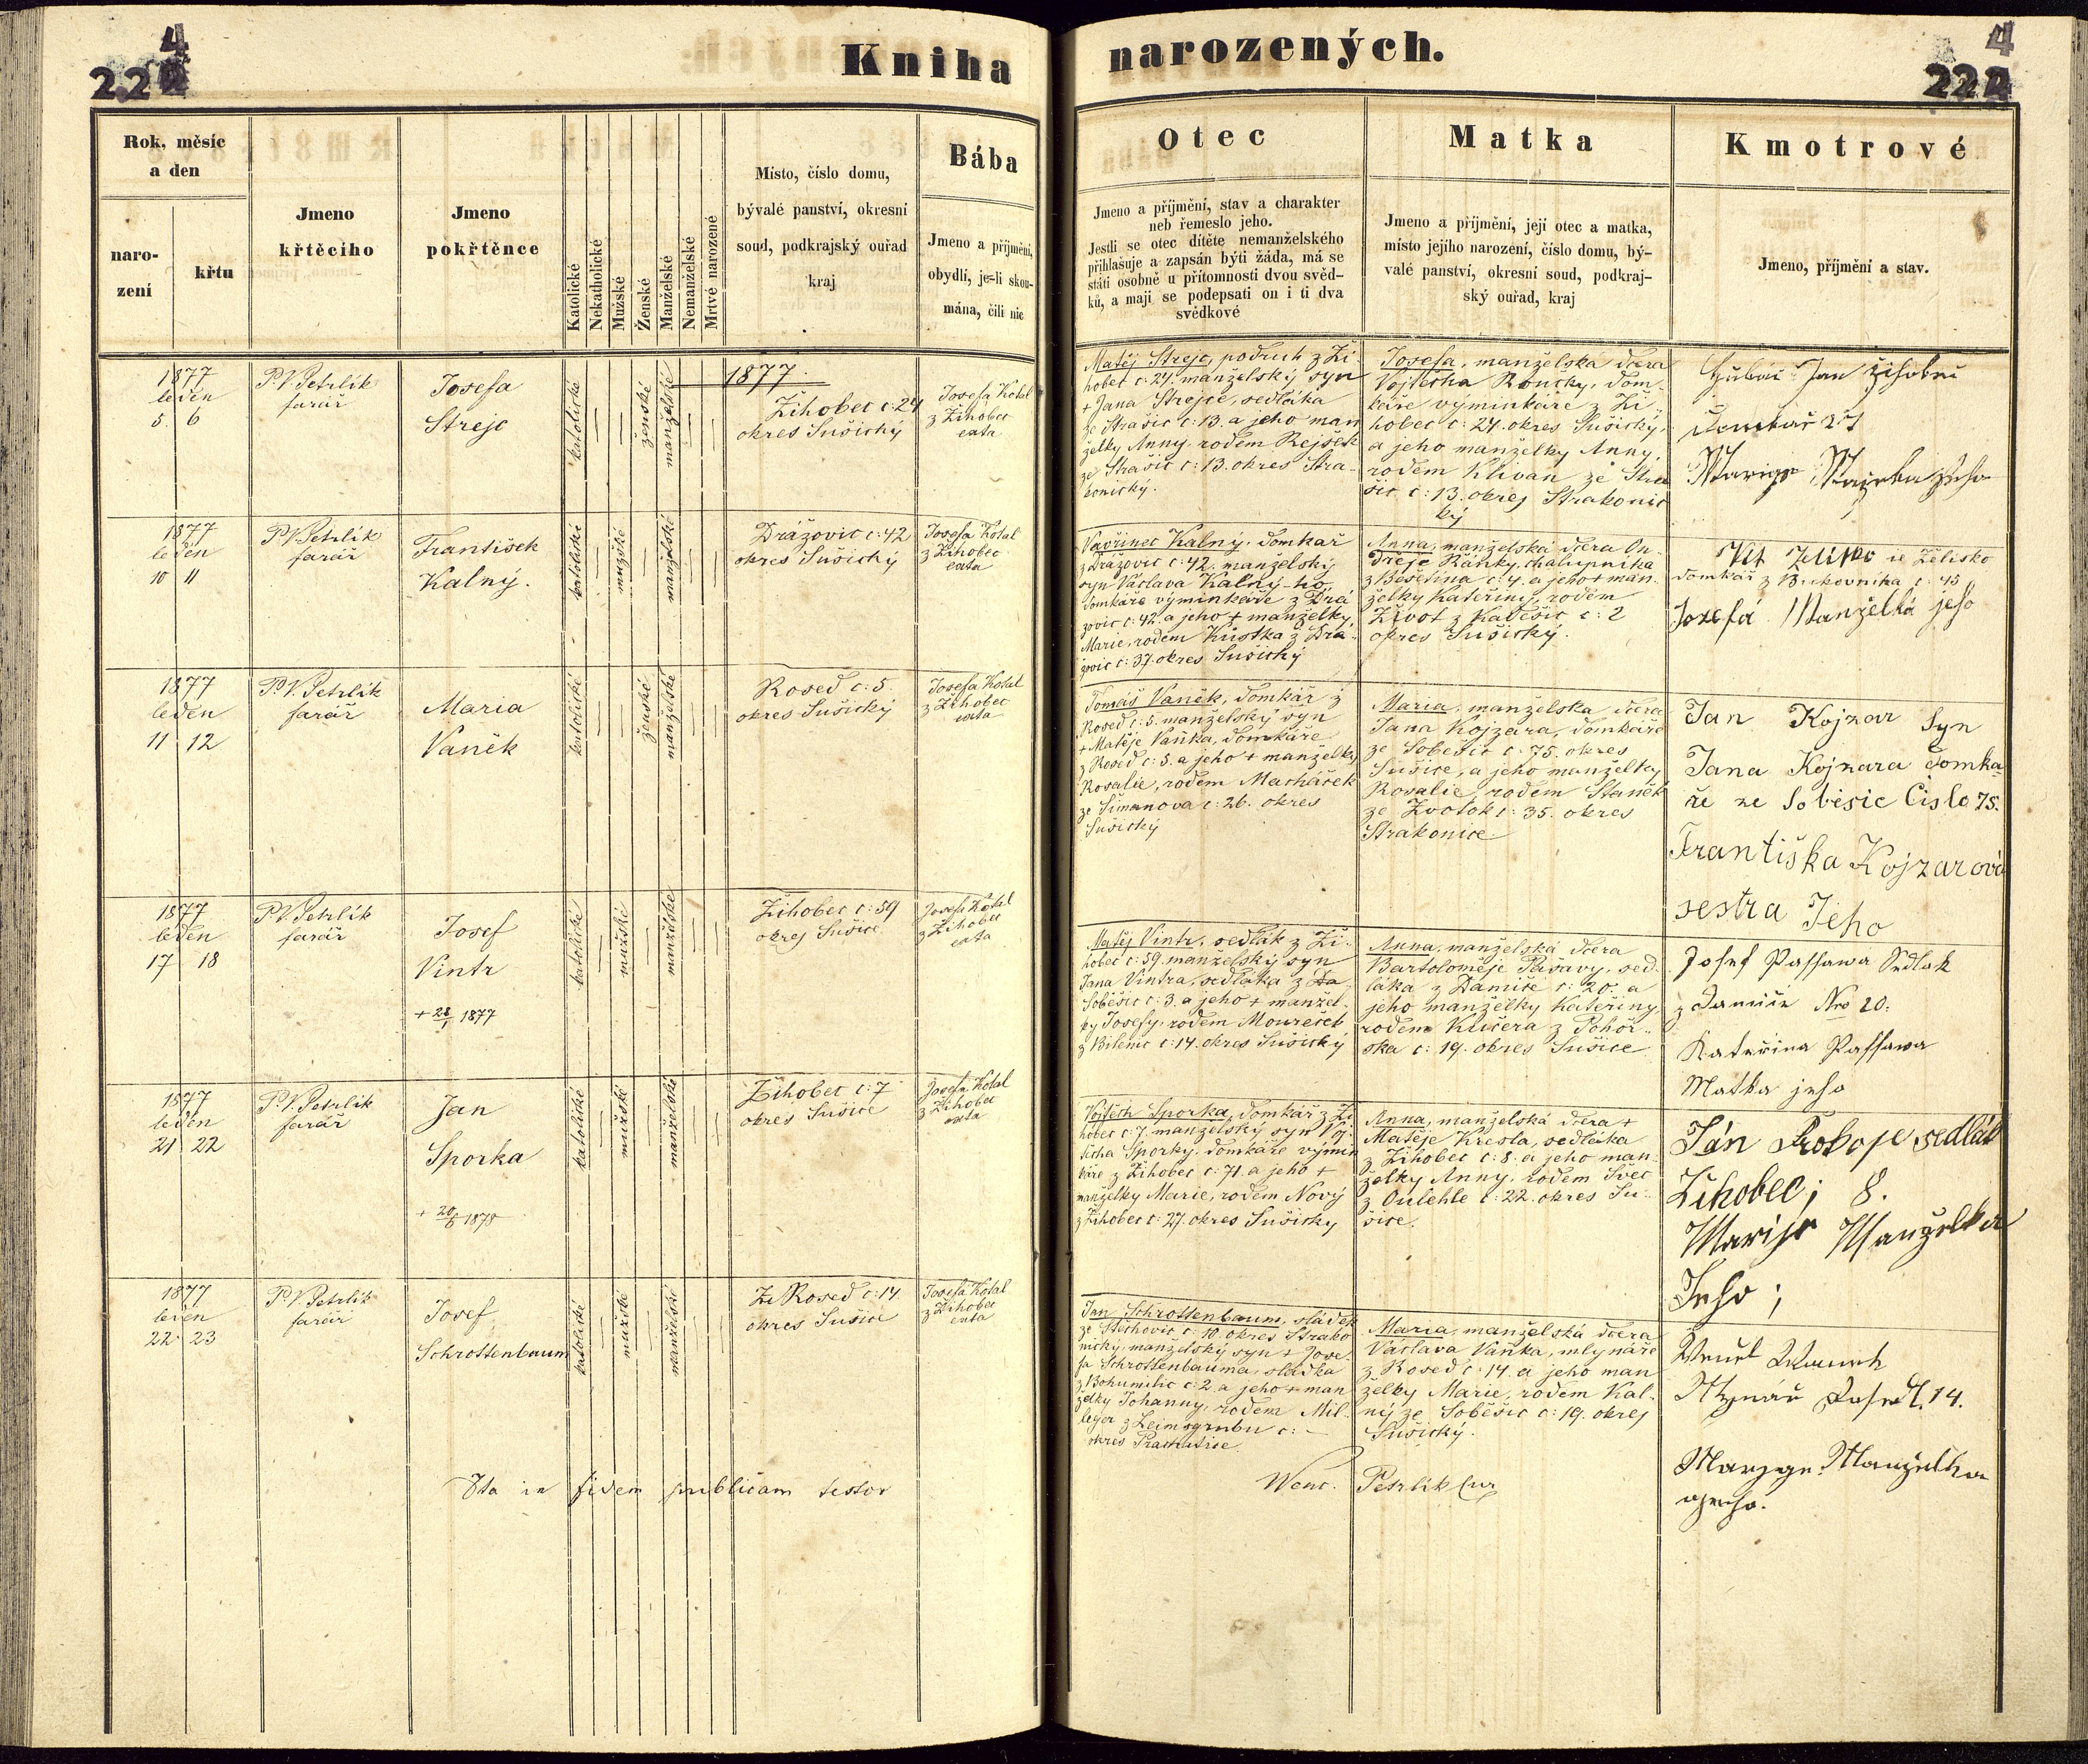 4
222
Kniha narozených.
4
222
Rok, měsíc
a den
naro-
zení
křtu
Jmeno
křtěcího
Jmeno
pokřtěnce
Katolické
Nekatholické
Mužské
Ženské
Manželské
Nemanželské
Mrtvé narozené
Místo, číslo domu,
bývalé panství, okresní
soud, podkrajský ouřad
kraj
Bába
Jmeno a příjmení,
obydlí, je-li skou-
mána, čili nic
Otec
Jmeno a příjmění, stav a charakter
neb řemeslo jeho.
Jestli se otec dítěte nemanželského
přihlašuje a zapsán býti žáda, má se
státi osobně u přítomnosti dvou svěd-
ků, a mají se podepsati on i ti dva
svědkové
Matka
Jmeno a příjmění, její otec a matka,
místo jejího narození, číslo domu, bý-
valé panství, okresní soud, podkraj-
ský ouřad, kraj
Kmotrové
Jmeno, příjmění a stav.
1877
leden
5. 6
P. V. Petrlík
farář
Josefa
Strejc
katolické
ženské
manželské
1877.
Žihobec c: 24
okres Sušický
Josefa Kotal
z Žihobec
exta
Matěj Strejc, podruh z Ži-
hobec c: 24. manželský syn
+ Jana Strejce, sedláka
ze Strašic c: 13. a jeho man
želky Anny, rodem Rejšek
ze Strašic c: 13. okres Stra-
konický.
Josefa, manželska dcera
Vojtěcha Roučky, dom-
káře výminkáře z Ži-
hobec c: 24. okres Sušický,
a jeho manželky Anny,
rodem Klivan ze Stra
šic c: 13. okres Strakonic
ký
Jan Žihobec
1877
leden
10 11
P. V. Petrlík
farář
František
Kalný.
katolické
mužské
manželské
Drážovic c: 42
okres Sušický
Josefa Kotal
z Žihobec
exta
Vavřinec Kalný, domkař
z Drážovic c: 42. manželský
syn Václava Kalny-ho,
domkáře výminkáře z Drá
žovic c: 42. a jeho + manželky,
Marie, rodem Kustka z Drá-
žovic c: 37. okres Sušický
Anna, manželská dcera On-
dřeje Ránky, chalupníka
z Bešetina c: 4. a jeho + man-
želky Kateřiny, rodem
Život z Kadešic c: 2
okres Sušický.
Vít Zelisko ie Želisko
domkář z Bukovníka c: 45
Jozefá Manželká jeho
1877
leden
11 12
P. V. Petrlík
farář
Maria
Vaněk
katolické
ženské
manželské
Rosed c: 5.
okres Sušický
Josefa Kotal
z Žihobec
exta
Tomáš Vaněk, domkář z
Rosed c: 5. manželský syn
+ Matěje Vaňka, domkáře
z Rosed c: 5. a jeho + manželky
Rosalie, rodem Macháček
ze Šimanova c: 26. okres
Sušický
Maria, manželska dcera
Jana Kojzara, domkáře
ze Soběšic c: 75. okres
Sušice, a jeho manželky
Rosalie, rodem Staněk
ze Zvotok c: 35. okres
Strakonice
Jan Kojzar Syn
Jana Kojzara domka
ře ze Soběšic Čislo 75.
Františka Kojzarová
sestra Jeho
1877
leden
17 18
P. V. Petrlík
farář
Josef
Vintr
+ 28/1 1877
katolické
mužské
manželské
Žihobec c: 59
okres Sušice
Josefa Kotal
z Žihobec
exta
Matěj Vintr, sedlák z Ži-
hobec c: 59. manželský syn
Jana Vintra, sedláka z Da
Soběšic c: 3. a jeho + manžel-
ky Josefy, rodem Moureček
z Bilenic c: 14. okres Sušický
Anna, manželská dcera
Bartoloměje Pašavy, sed-
láka z Damíče c: 20. a
jeho manželky Kateřiny
rodem Klučera z Pohoř-
ska c: 19. okres Sušice
Josef Passawa Sedlak
z Damíče Nro 20.
Kateřina Passawa
Matka jeho
1877
leden
21 22
P. V. Petrlík
farář
Jan
Sporka
+ 20/6 1878
katolické
mužské
manželské
Žihobec c: 7
okres Sušice
Josefa Kotal
z Žihobec
exta
Vojtěch Sporka, domkář z Ži
hobec c: 7. manželský syn Voj-
těcha Sporky, domkáře výmin
káře z Žihobec c: 71. a jeho +
manželky Marie, rodem Nový
z Žihobec c: 27. okres Sušický
Anna, manželská dcera +
Matěje Kresla, sedláka
z Žihobec c: 8. a jeho man-
želky Anny, rodem Švec
z Oulehle c: 22. okres Su-
šice.
Ján Prokop sedlák
Žihobec; 8.
Marije Manželka
Jeho;
1877
leden
22 23
P. V. Petrlík
farář
Josef
Schrottenbaum
katolické
mužské
manželské
Rosed c: 14
okres Sušice
Josefa Kotal
z Žihobec
exta
Jan Schrottenbaum, sládek
ze Stěchovic c: 10. okres Strako
nický, manželský syn + Jose-
fa Schrottenbauma, sládka
z Bohumilic c: 2. a jeho + man
želky Johanny, rodem Mil-
leger z Leimsgrubu c: –
okres Prachatice.
Maria, manželská dcera
Václava Vaňka, mlynáře
z Rosed c: 14. a jeho man
želky Marie, rodem Kal-
ný ze Soběšic c: 19. okres
Sušický.
Mlynář Rosed 14.
Manželka
jeho.
Ita in fidem publicam testor
Wenc. Petrlik Cur